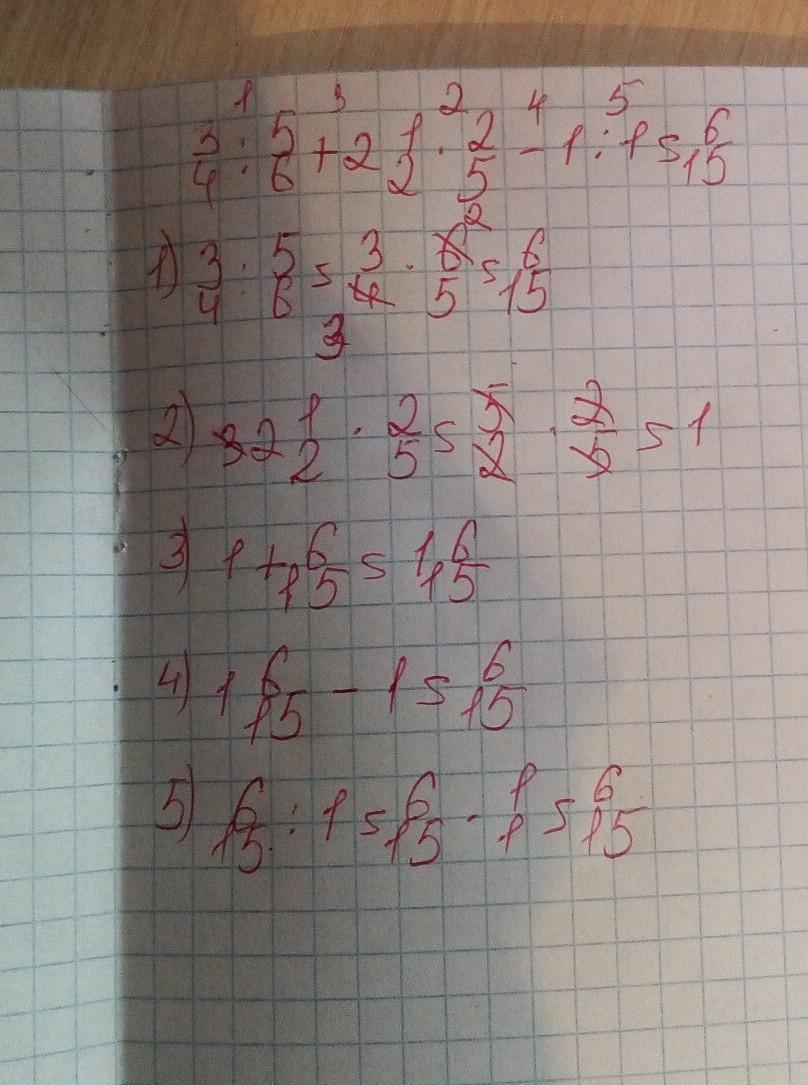 1 3 2 4 5
3/4 : 5/6 + 2 1/2 · 2/5 - 1 : 1 = 6/15
1) 3/4 : 5/6 = 3/4 · 6/5 = 6/15
2
3
2) 2 1/2 · 2/5 = 5/2 · 2/5 = 1
3) 1 + 6/15 = 1 6/15
4) 1 6/15 - 1 = 6/15
5) 6/15 : 1 = 6/15 · 1/1 = 6/15